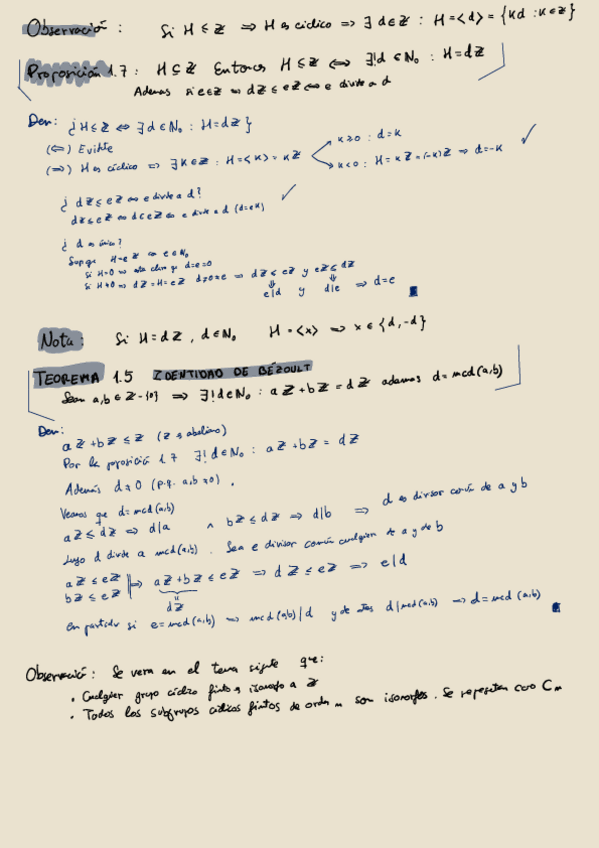 Observación: Si H ≤ ℤ ⇒ H es cíclico ⇒ ∃ d∈ℤ : H = <d> = {kd : k∈ℤ}
Proposición 1.7: H ⊆ ℤ Entonces H ≤ ℤ ⇔ ∃! d ∈ ℕ₀ : H = dℤ
Ademas si e∈ℤ ⇒ dℤ ≤ eℤ ⇔ e divide a d
Dem: ¿H ≤ ℤ ⇔ ∃ d ∈ ℕ₀ : H = dℤ}
(⇐) Evidte
(⇒) H es cíclico ⇒ ∃ k∈ℤ : H = <k> = kℤ
k≥0 : d=k
k<0 : H = kℤ = (-k)ℤ ⇒ d=-k ✓
¿ dℤ ≤ eℤ ⇔ e divide a d?
dℤ ≤ eℤ ⇔ d∈eℤ ⇔ e divide a d (d=ek) ✓
¿ d es único?
Supgo H=eℤ con e∈ℕ₀
Si H=0 ⇒ esta claro qe d=e=0
Si H≠0 ⇒ dℤ=H=eℤ d≠0≠e ⇒ dℤ ≤ eℤ y eℤ ≤ dℤ
⇓ ⇓
e|d y d|e ⇒ d=e
Nota: Si H=dℤ, d∈ℕ₀ H=<x> ⇒ x∈{d,-d}
TEOREMA 1.5 IDENTIDAD DE BÉZOULT
Sean a,b ∈ ℤ-{0} ⇒ ∃! d∈ℕ₀ : aℤ+bℤ = dℤ ademas d=mcd(a,b)
Dem:
aℤ+bℤ ≤ ℤ (ℤ es abeliano)
Por la proposición 1.7 ∃! d∈ℕ₀ : aℤ+bℤ = dℤ
Además d≠0 (p.q. a,b≠0).
Veamos que d=mcd(a,b)
aℤ ≤ dℤ ⇒ d|a ∧ bℤ ≤ dℤ ⇒ d|b ⇒ d es divisor común de a y b
Luego d divide a mcd(a,b). Sea e divisor común cualquiera de a y de b
aℤ ≤ eℤ
bℤ ≤ eℤ ⇒ aℤ+bℤ ≤ eℤ ⇒ dℤ ≤ eℤ ⇒ e|d
dℤ
En particular si e=mcd(a,b) ⇒ mcd(a,b)|d y de antes d|mcd(a,b) ⇒ d=mcd(a,b)
Observación: Se vera en el tema sigte que:
• Cualquier grupo cíclico finto es isomorfo a ℤ
• Todos los subgrupos cíclicos fintos de orden n son isomorfos. Se representan como Cₙ